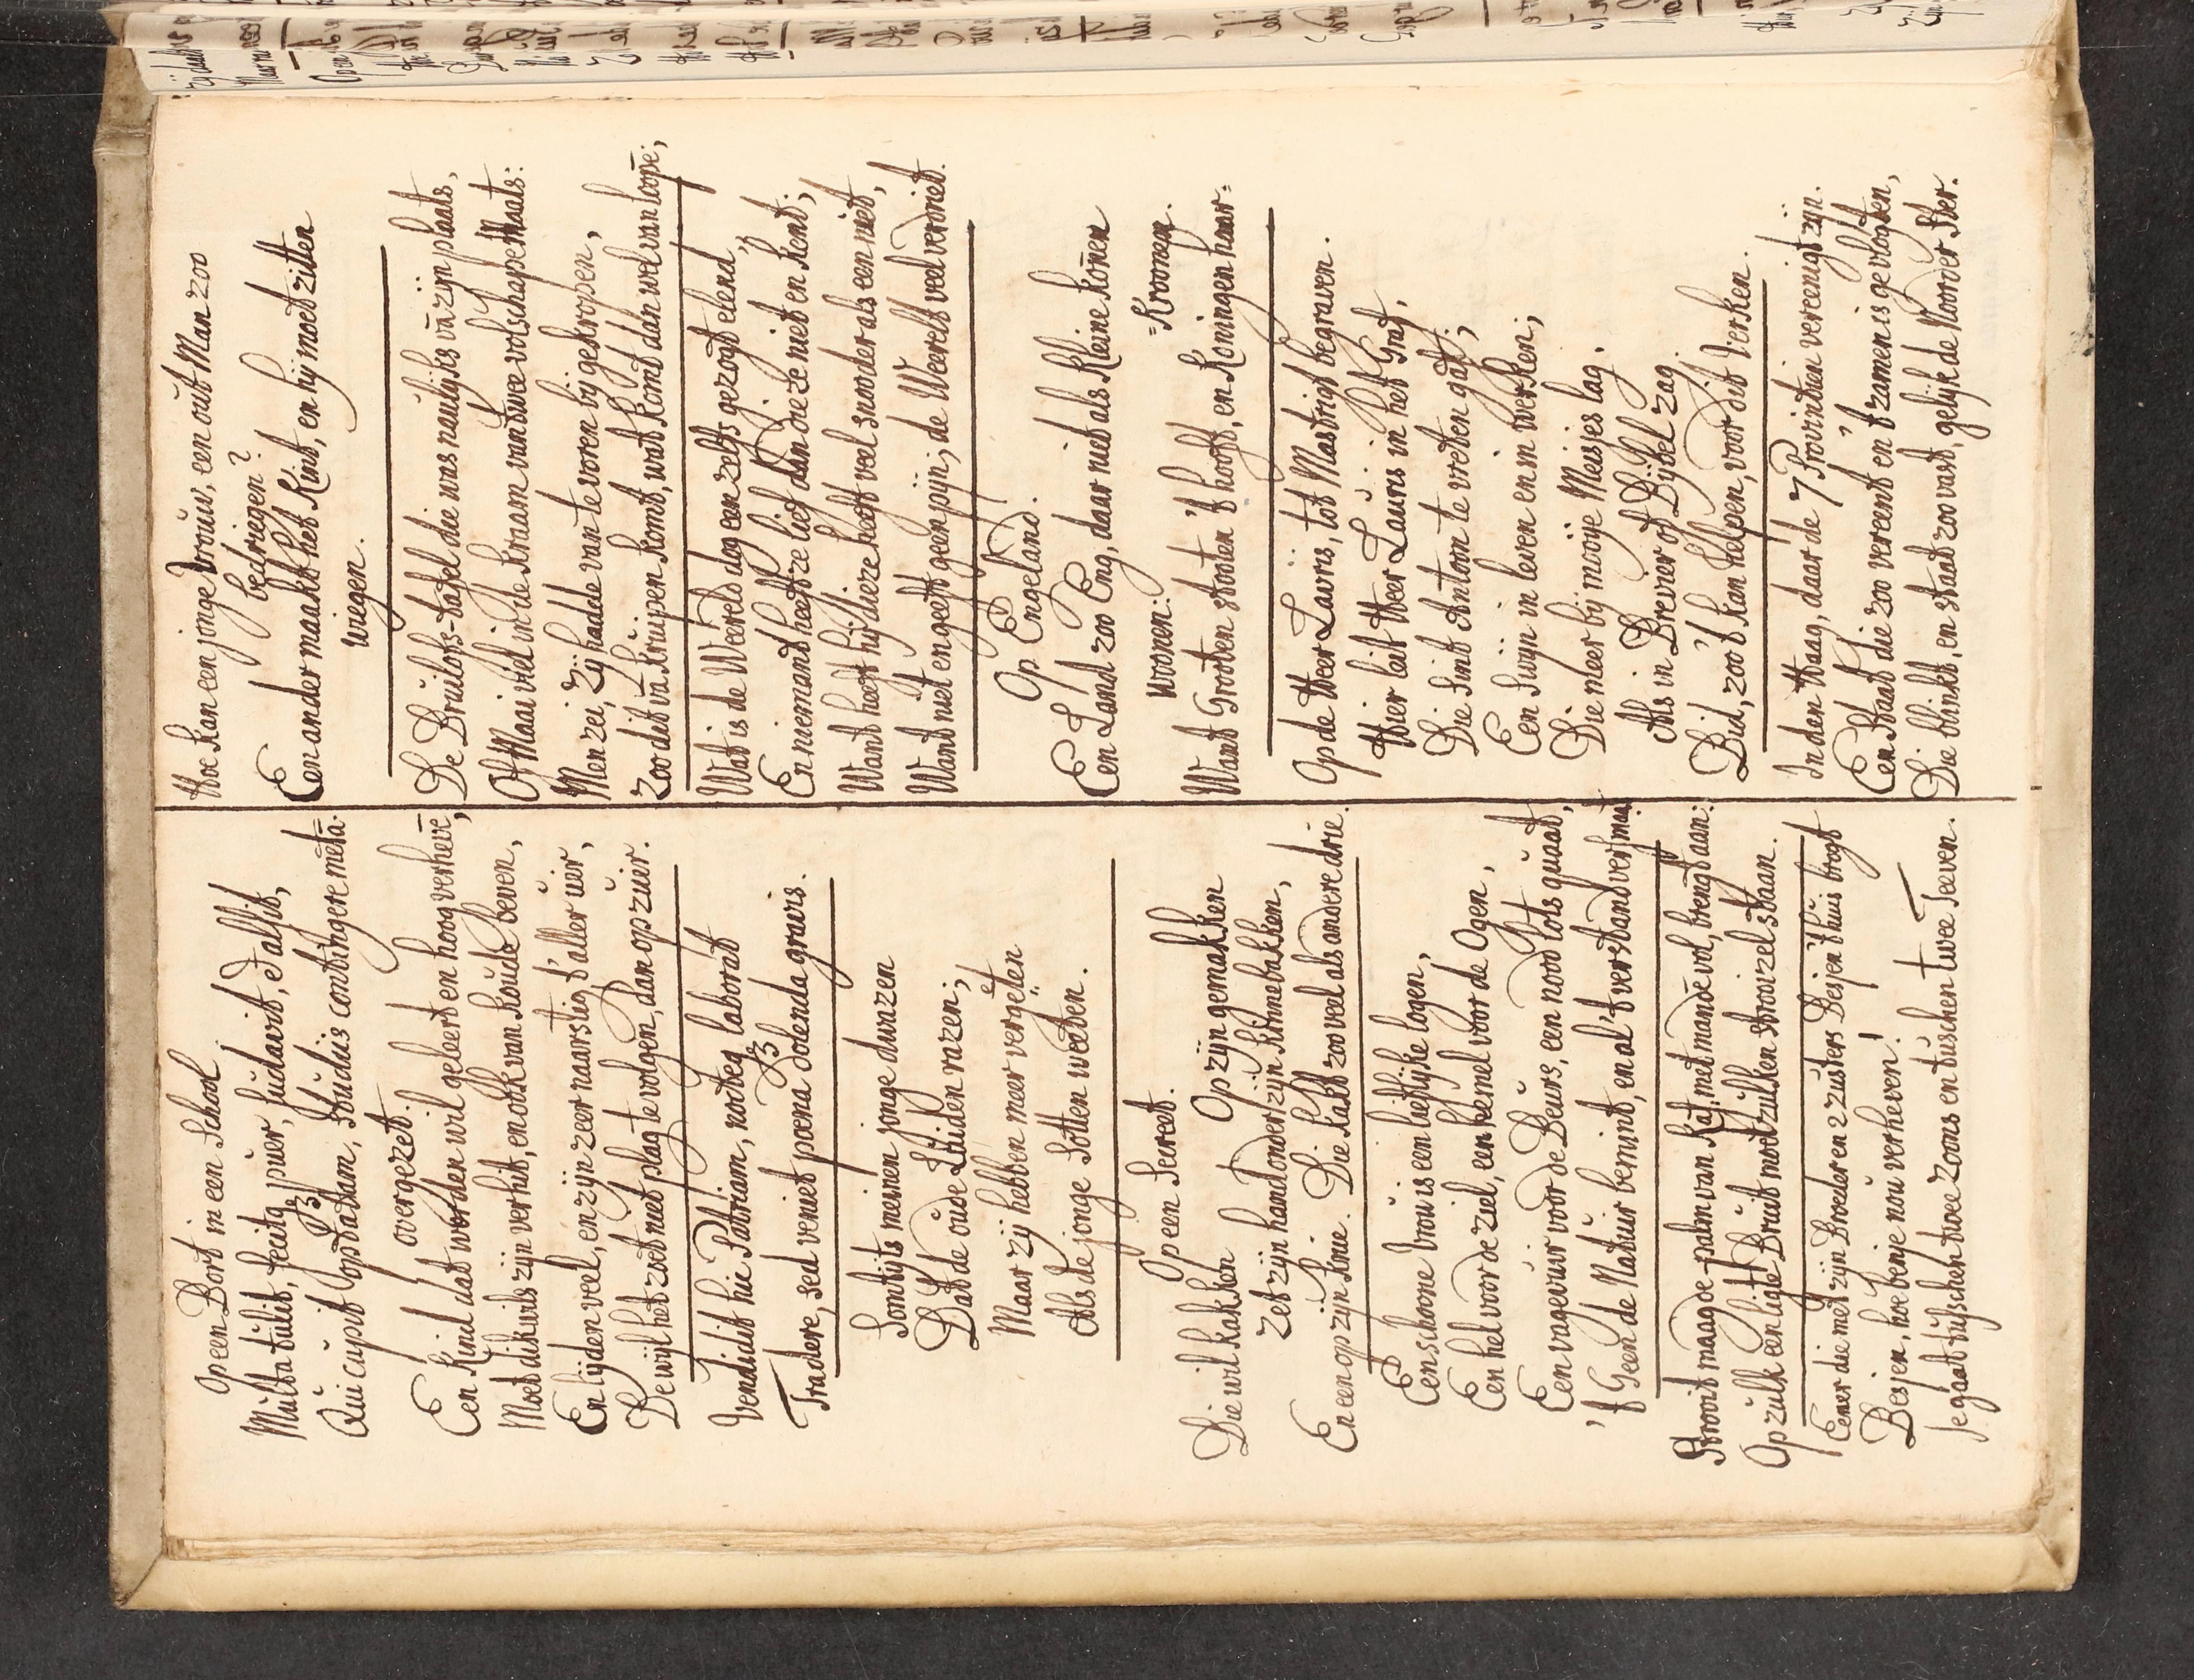 Op een Bort in een School
Multa tulit, fecitq puer, sudavit, et alsit,
Qui cupit optatam, studiis contingere metā.
overgezet.
Een Kind dat worden wil geleert en hoog verhevē,
Moet dikwils zijn verhit, en ook van koude beven,
En lijden veel, en zijn zeer naarstig t' aller uir,
Dewijl het zoet niet plag te volgen, dan op zuir.
Vendidit hic Patriam, noctesq laborat
Tradere, sed veniet poena dolenda gravis.
Somtijts meinen jonge dwazen
Dat de oude Luiden razen;
Maar zij hebben meer vergeten
Als de jonge Sotten weeten.
Op een Secreet.
Die wil kakken Op zijn gemakken
Zet zijn hand onder zijn kinnebakken,
En een op zijn knie. Die kakt zoo veel als andere drie.
Een schoone Vrou is een lieflijke logen,
Een hel voor de ziel, een hemel voor de Ogen,
Een vagevuir voor de Beurs, een nood lots quaat,
't Geen de Natuir bemint, en al 't verstand versmaat.
Strooit maagde-palm van Kat, met mandē vol, brengt aan:
Op zulk een ligte Bruit moet zulken strooizel staan.
Eener die met zijn Broeder en 2 zusters Besjen t' huis brogt
Besjen, hoe benje nou verheven!
Je gaat tusschen twee Zoons en tuschen twee Teeven.
Hoe kan een jonge Vrouw, een out Man zoo
bedriegen?
Een ander maakt het Kint, en hij moet zitten
wiegen.
De Bruilofs-tafel die was naulijks vā zijn plaats,
Of Maai viel in de Kraam van twee volschape Maats:
Men zei, Zij hadde van te voren bij gekropen,
Zoo dit vā kruipen komt, wat komt dan wel van loopē;
Wat is de Weerelt dog een zelfs gezogt elend,
En niemant heeft ze lief dan die ze niet en kent;
Want heeft hij dieze heeft veel snooder als een niet,
Want niet en geeft geen pijn; de Weerelt veel verdriet.
Op Engeland.
Een Land zoo Eng, daar niet als Kleine konēn
woonen:
Want Grooten stooten 't hooft, en Koningen haar=
=Kroonen.
Op de Heer Lauris, tot Mastrigt begraven.
Hier leit Heer Lauris in het Graf,
Die Sint Antoon te vreten gaf;
Een Swijn in leven en in werken;
Die meer bij mooije Meisjes lag,
Als in Brevier of Bijbel zag.
Bid, zoo 't kan helpen, voor dit Verken.
In den Haag, daar de 7 Provintien vereenigt zijn.
Een Staat die zoo vereent en t' zamen is gevoogten,
Die blinkt, en staat zoo vast, gelijk de Noorder Ster.